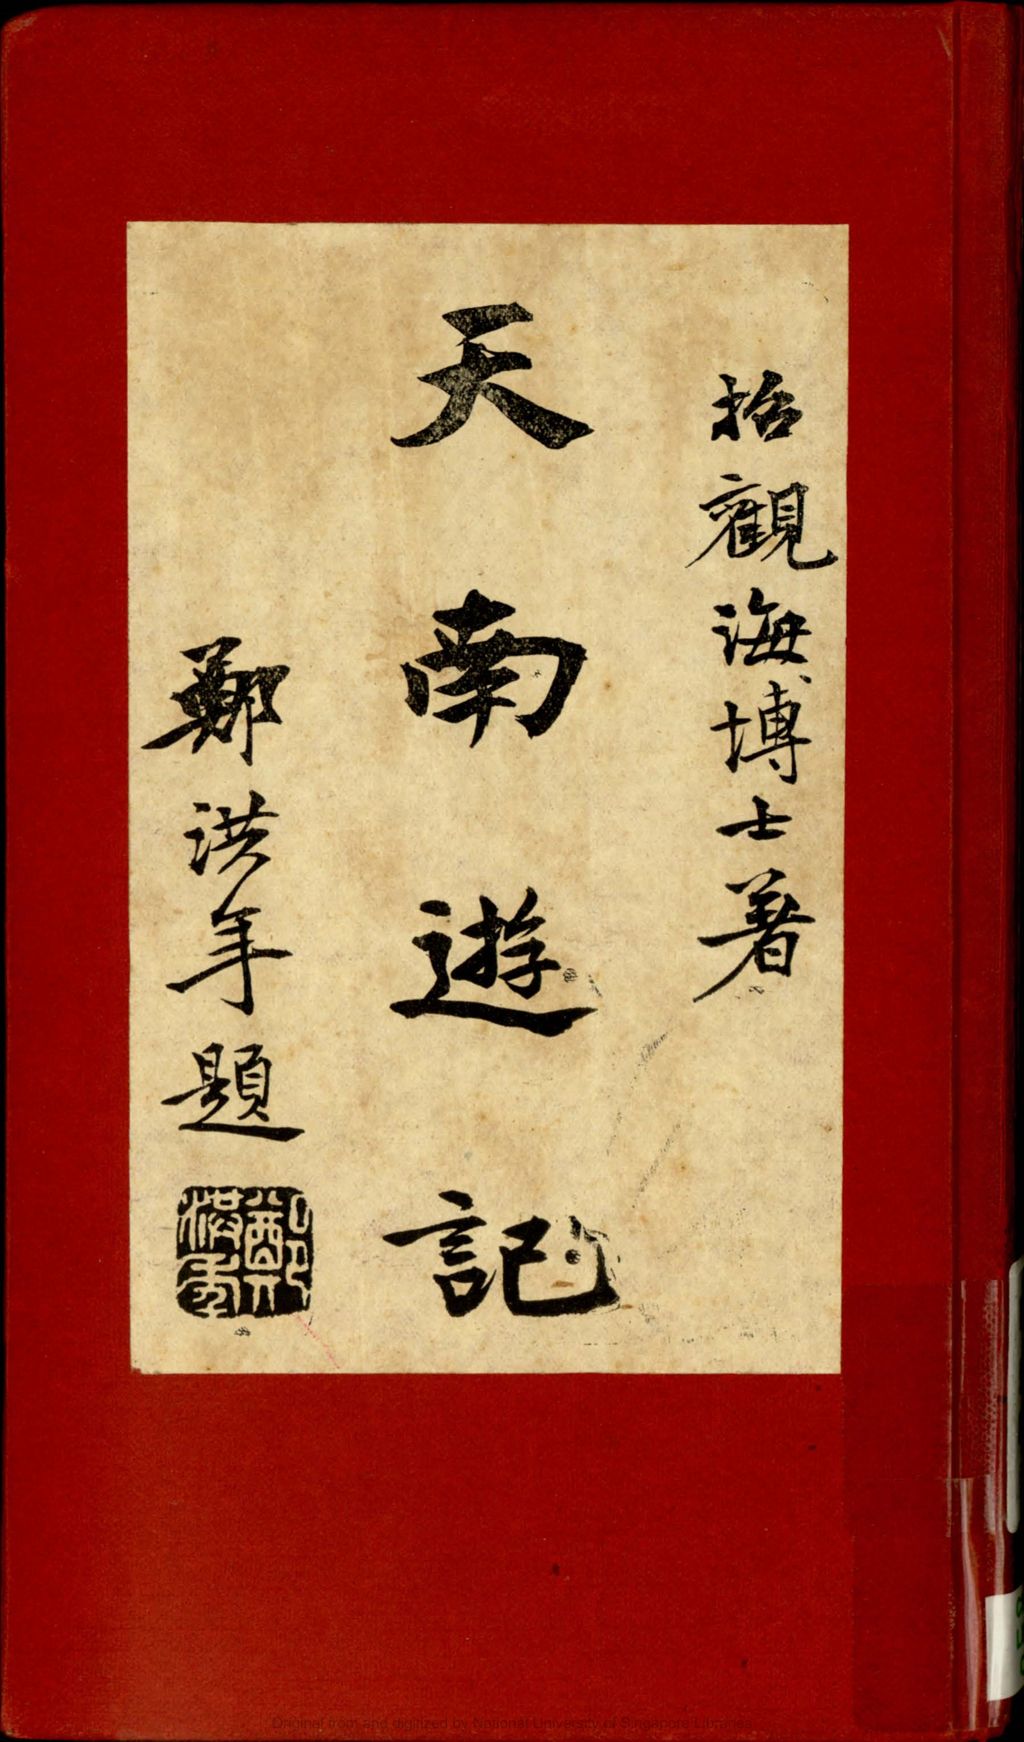 招觀海博士著
天南遊記
鄭洪年題
鄭洪年
Original from and digitized by National University of Singapore Libraries